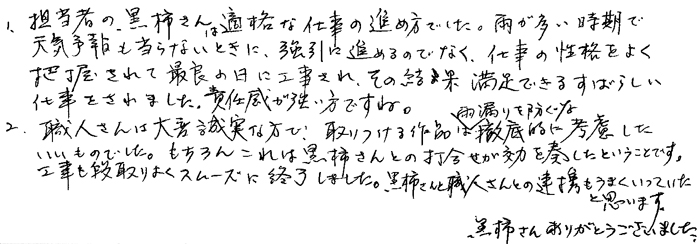 1. 担当者の黒柿さんは適格な仕事の進め方でした。雨が多い時期で
天気予報も当らないときに、強引に進めるのでなく、仕事の性格をよく
把握されて最良の日に工事され、その結果満足できるすばらしい
仕事をされました。責任感が強い方ですね。
2. 職人さんは大変誠実な方で、取りつける作品は雨漏りを防ぐ為徹底的に考慮した
いいものでした。もちろんこれは黒柿さんとの打合せが効を奏したということです。
工事も段取りよくスムーズに終了しました。黒柿さんと職人さんとの連携もうまくいっていた
と思います。
黒柿さんありがとうございました。